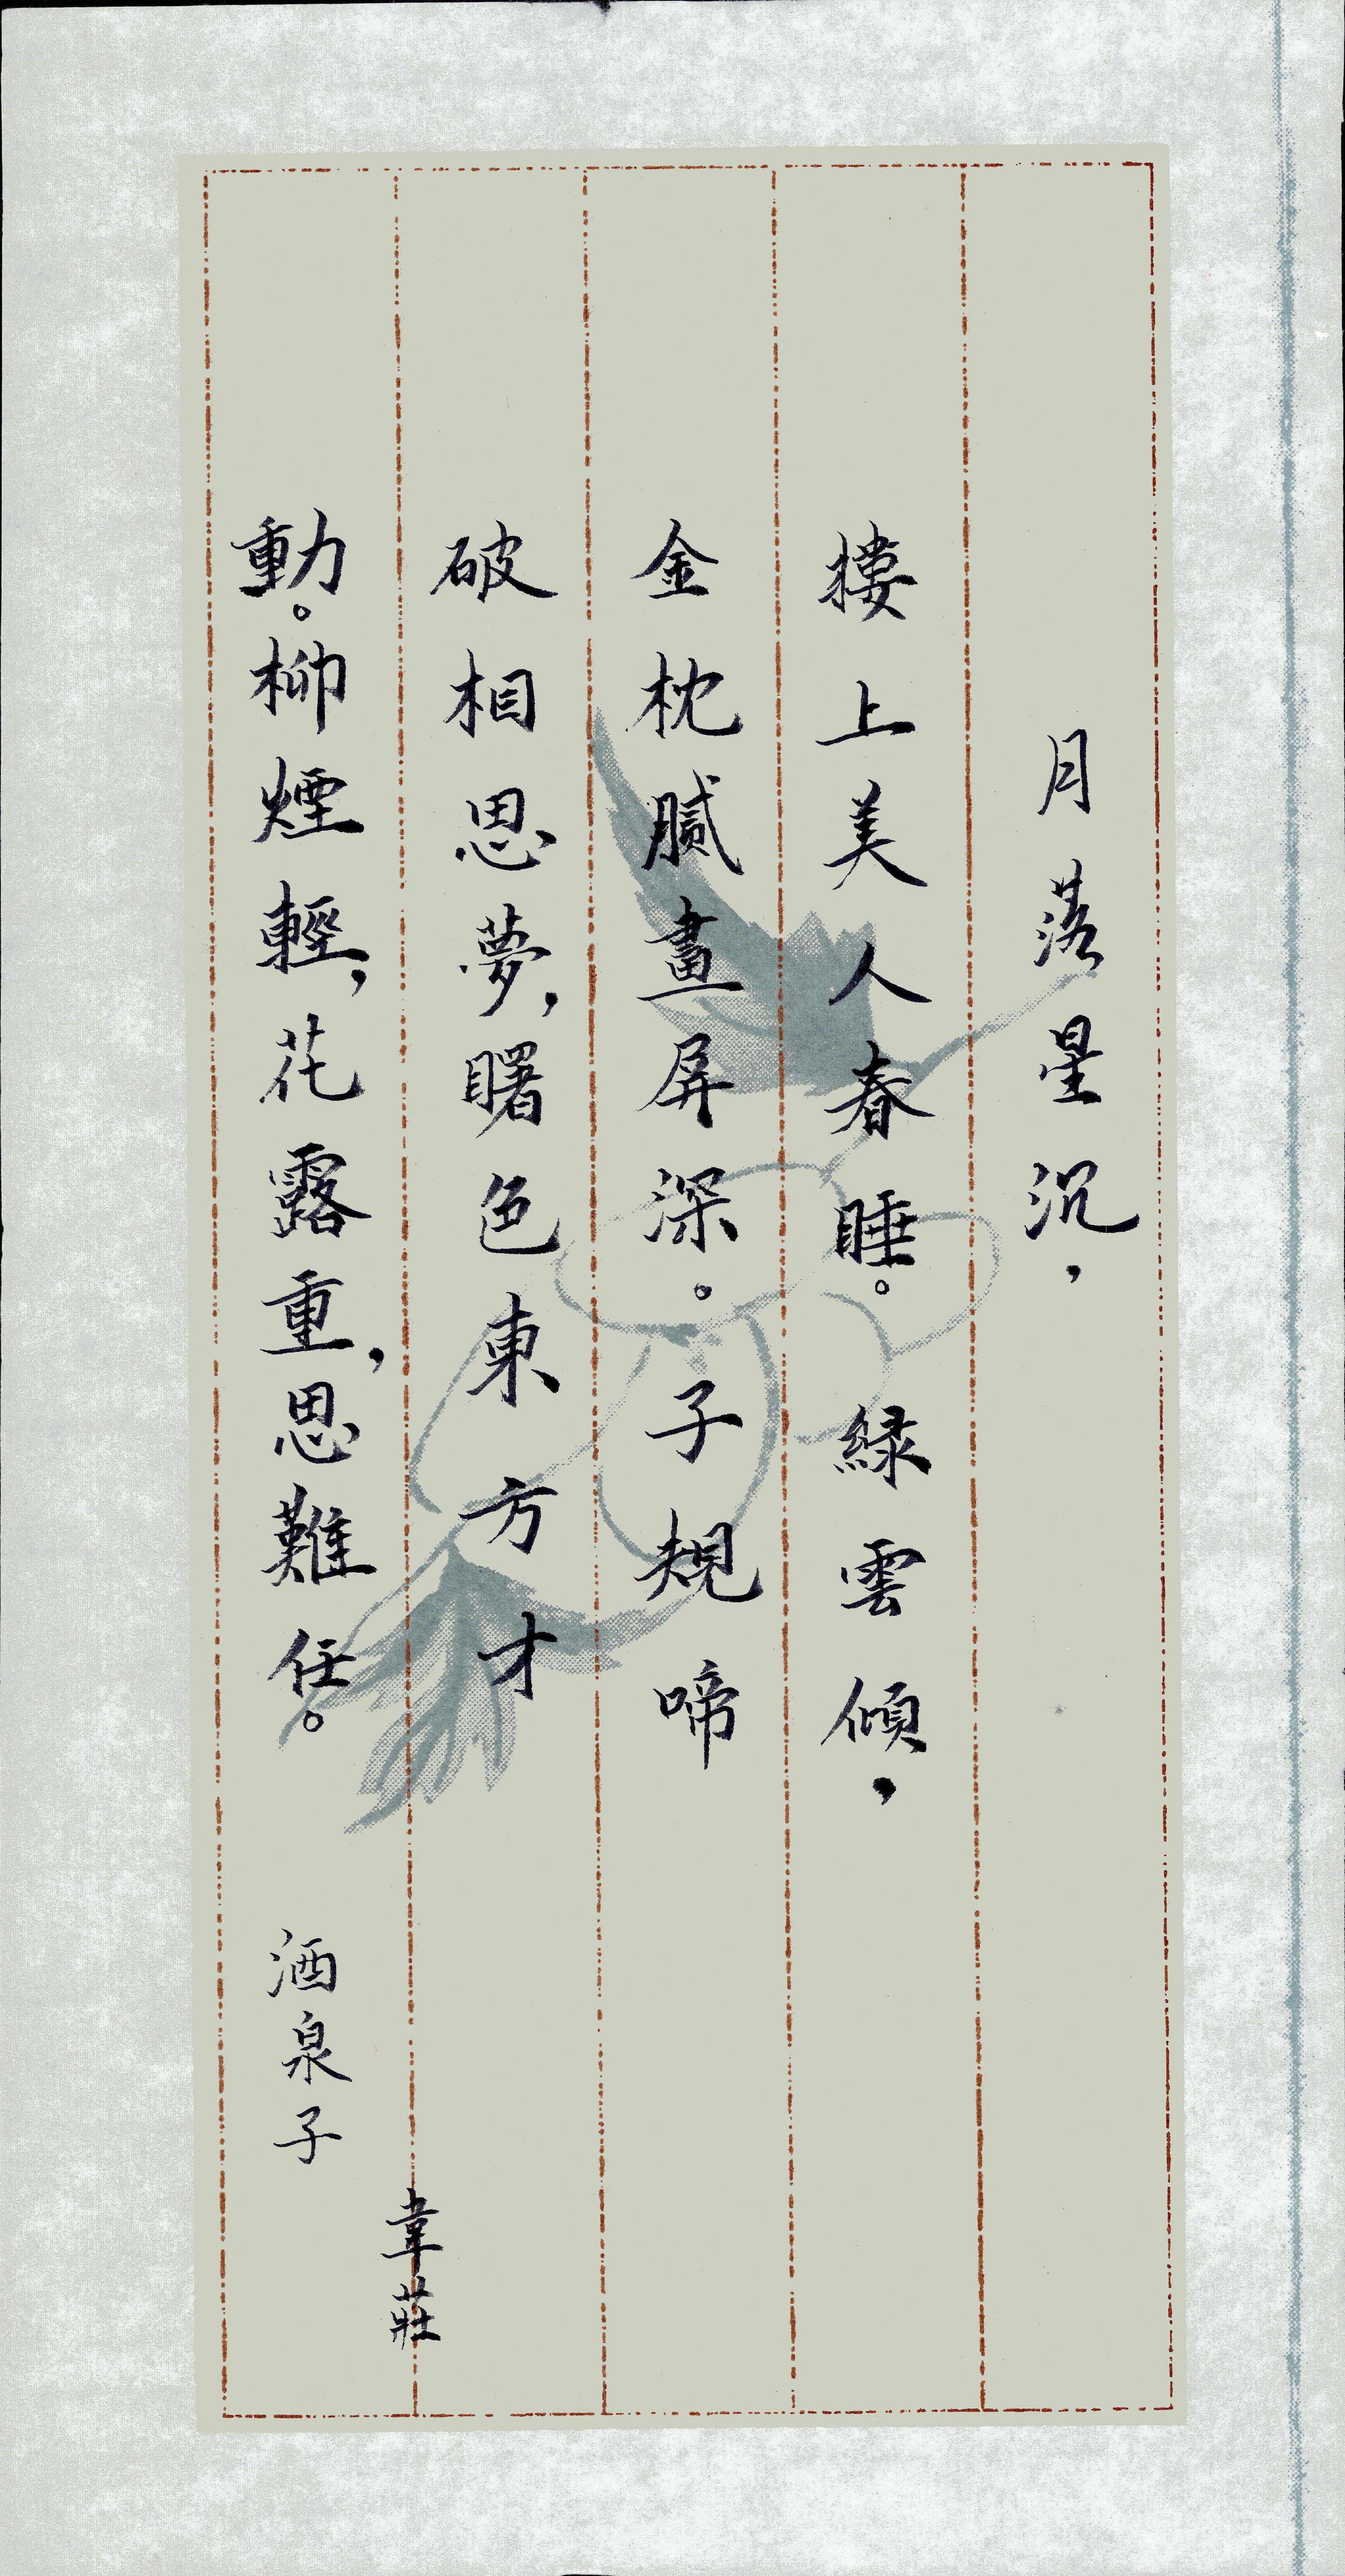 月落星沉，
樓上美人春睡。綠雲傾，
金枕膩畫屏深。子規啼
破相思夢，曙色東方才
動。柳煙輕，花露重，思難任。
酒泉子
韋莊